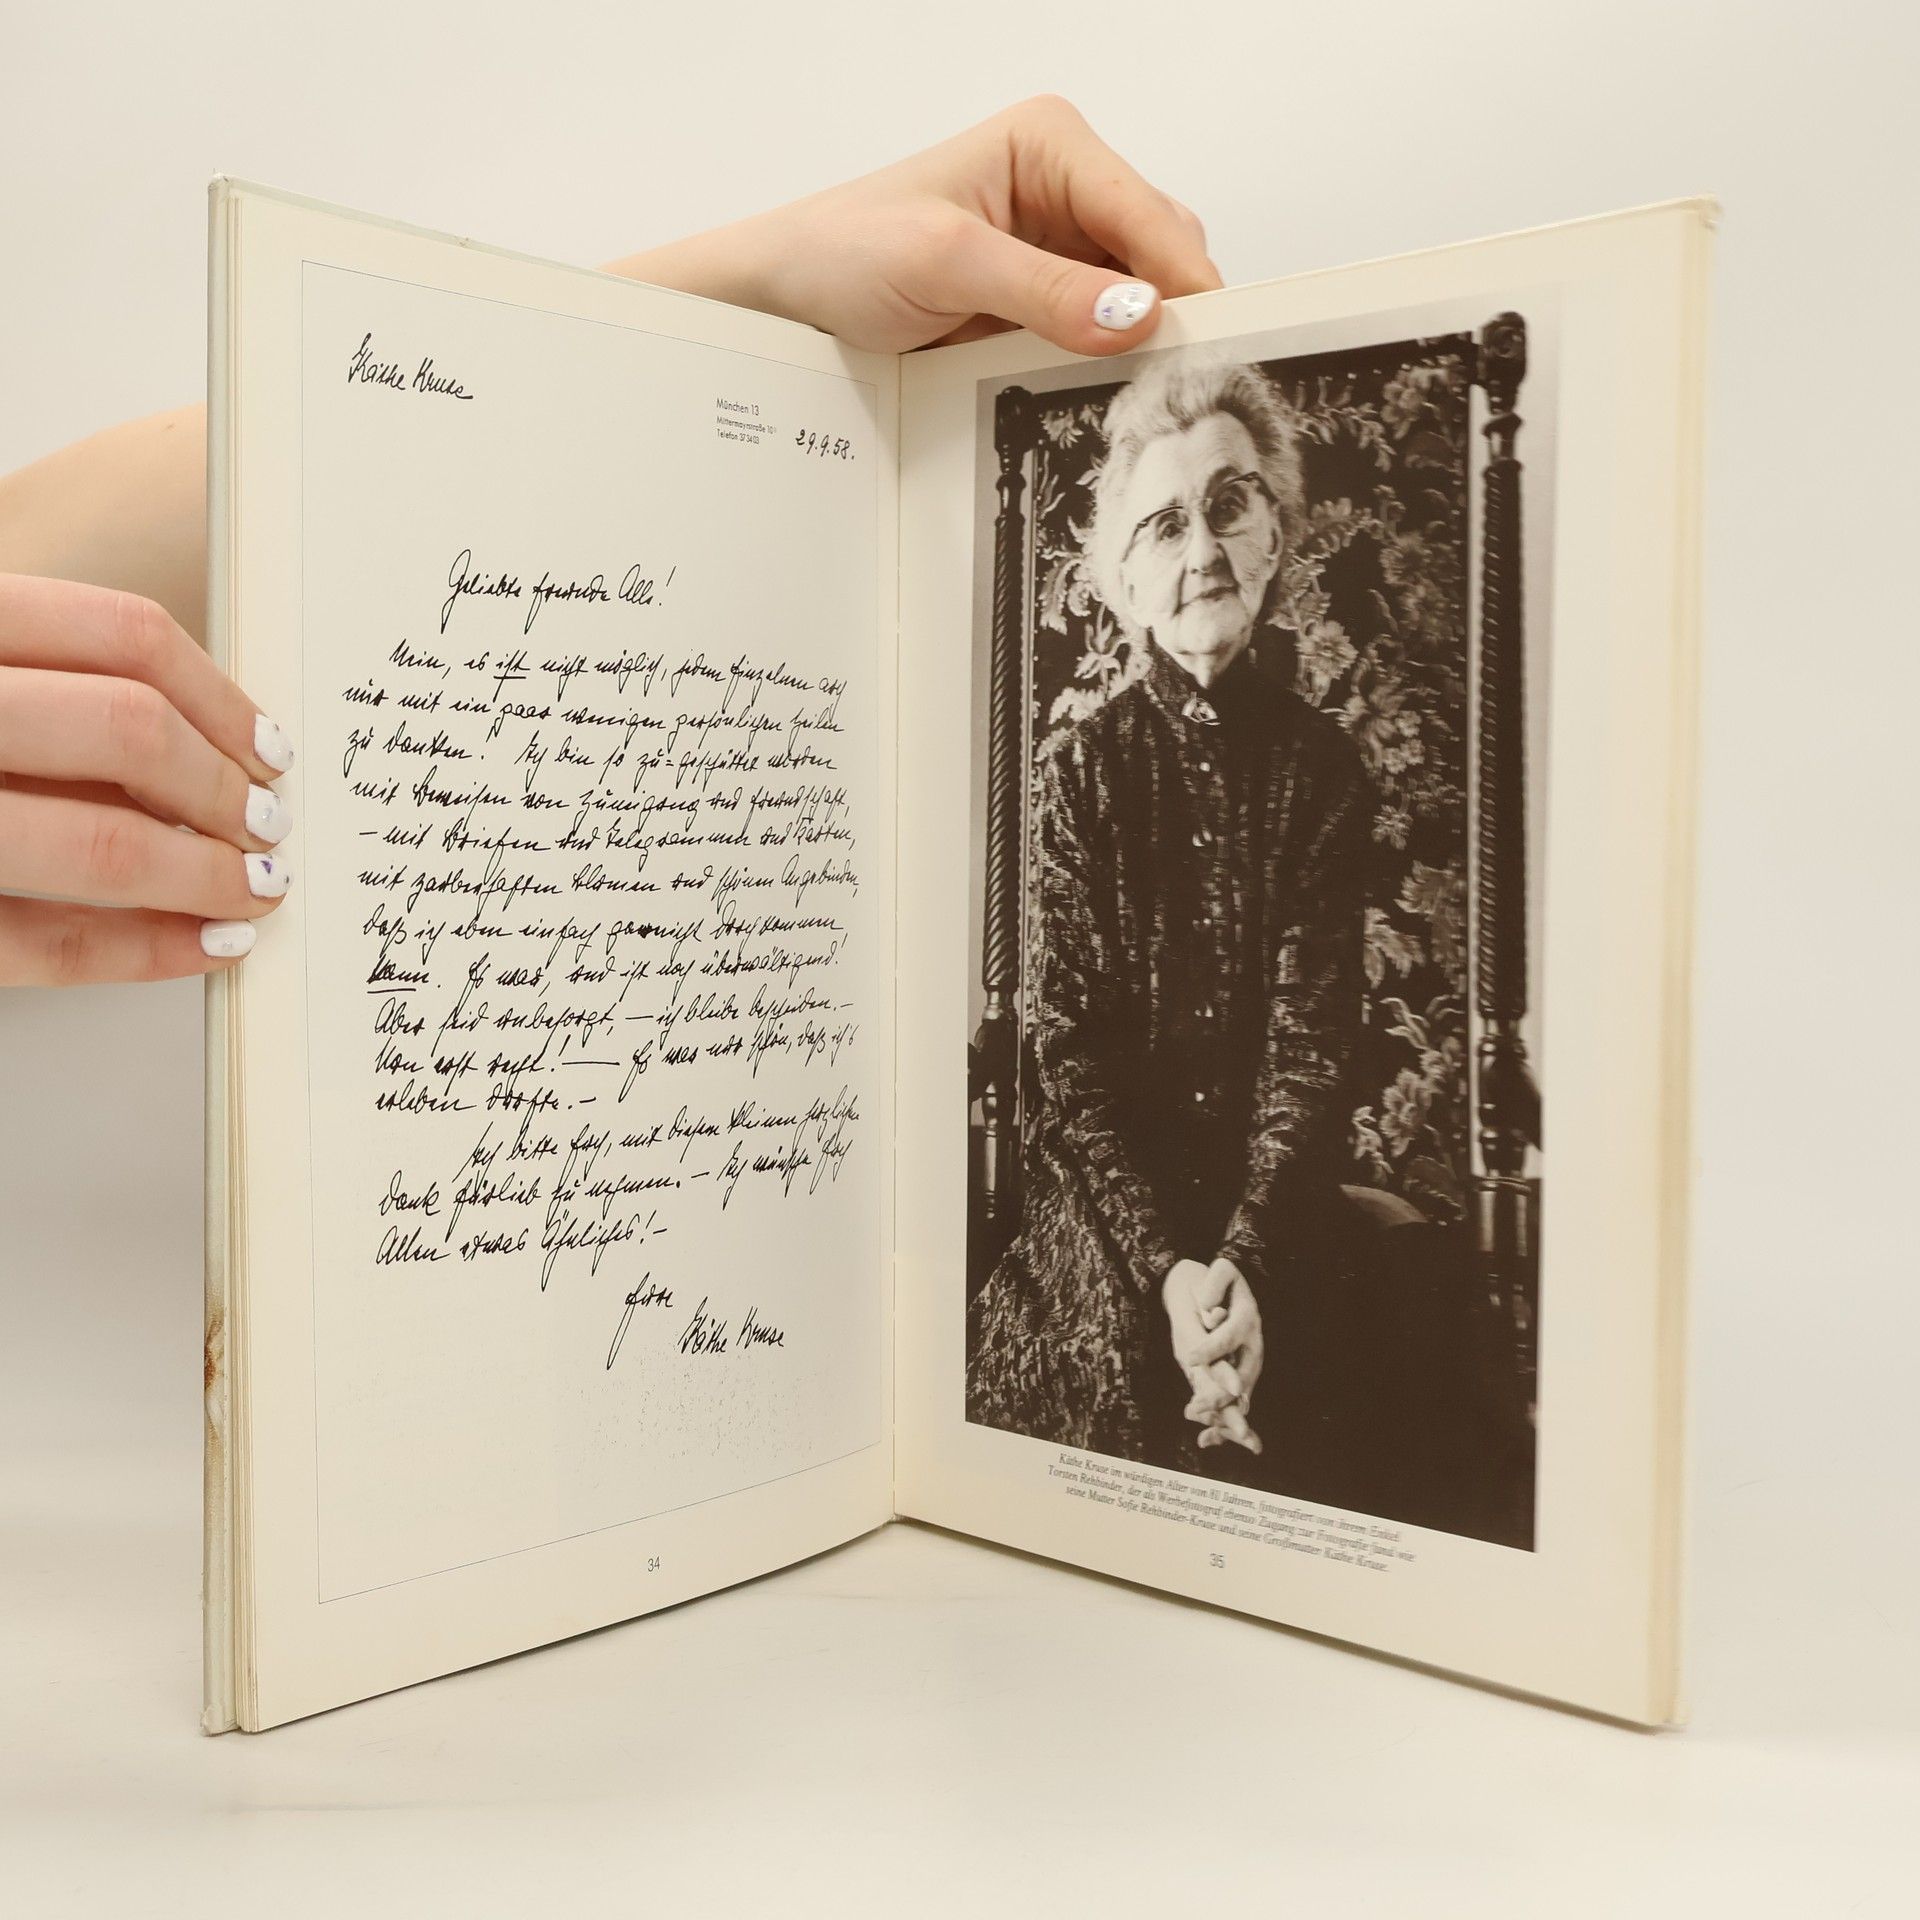 Käthe Kruse
München 13
Mittermayrstraße 10
Telefon 37 34 03
29.9.58.
Geliebte Freunde Alle!
Nein, es ist nicht möglich, jedem Einzelnen auch
nur mit ein paar wenigen persönlichen Zeilen
zu danken! Ich bin so zu=geschüttet worden
mit Beweisen von Zuneigung und Freundschaft,
– mit Briefen und Telegrammen und Karten,
mit zauberhaften Blumen und schönen Angebinden,
daß ich eben einfach garnicht durchkommen
kann. Es war, und ist noch überwältigend!
Aber seid unbesorgt, – ich bleibe bescheiden. –
Nun erst recht! — Es war nur schön, daß ich's
erleben durfte. –
Ich bitte Euch, mit diesem kleinen herzlichen
Dank fürlieb zu nehmen. – Ich wünsche Euch
Allen etwas Ähnliches! –
Eure
Käthe Kruse
34
Käthe Kruse im würdigen Alter von 81 Jahren, fotografiert von ihrem Enkel
Torsten Rehbinder, der als Werbefotograf ebenso Zugang zur Fotografie fand wie
seine Mutter Sofie Rehbinder-Kruse und seine Großmutter Käthe Kruse.
35